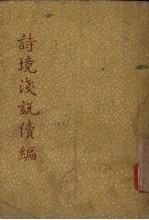 詩境淺説續編